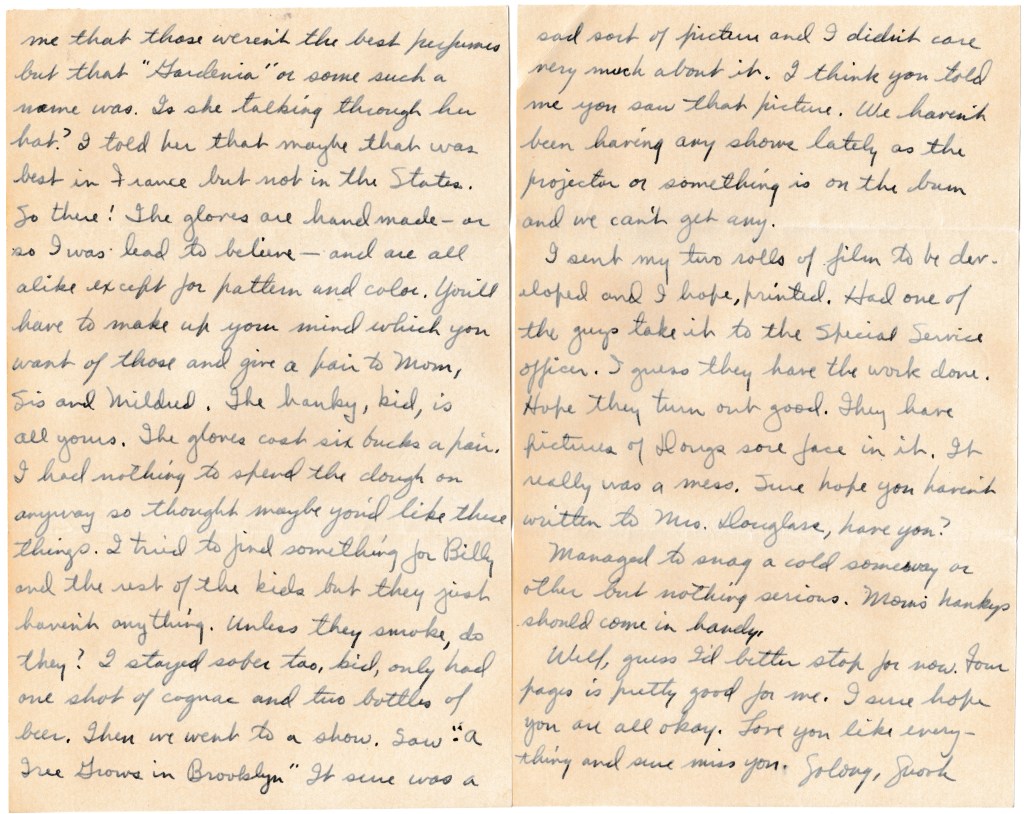 me that those weren't the best perfumes
but that "Gardenia" or some such a
name was. Is she talking through her
hat? I told her that maybe that was
best in France but not in the States.
So there! The gloves are hand made - or
so I was lead to believe - and are all
alike except for pattern and color. You'll
have to make up your mind which you
want of those and give a pair to Mom,
Sis and Mildred. The hanky, kid, is
all yours. The gloves cost six bucks a pair.
I had nothing to spend the dough on
anyway so thought maybe you'd like these
things. I tried to find something for Billy
and the rest of the kids but they just
haven't anything. Unless they smoke, do
they? I stayed sober too, kid, only had
one shot of cognac and two bottles of
beer. Then we went to a show. Saw "A
Tree Grows in Brooklyn" It sure was a
sad sort of picture and I didn't care
very much about it. I think you told
me you saw that picture. We haven't
been having any shows lately as the
projector or something is on the bum
and we can't get any.
I sent my two rolls of film to be dev-
eloped and I hope, printed. Had one of
the guys take it to the Special Service
officer. I guess they have the work done.
Hope they turn out good. They have
pictures of Dougs sore face in it. It
really was a mess. Sure hope you haven't
written to Mrs. Douglass, have you?
Managed to snag a cold someway or
other but nothing serious. Mom's hankys
should come in handy.
Well, guess I'd better stop for now. Four
pages is pretty good for me. I sure hope
you are all okay. Love you like every-
thing and sure miss you. Solong,